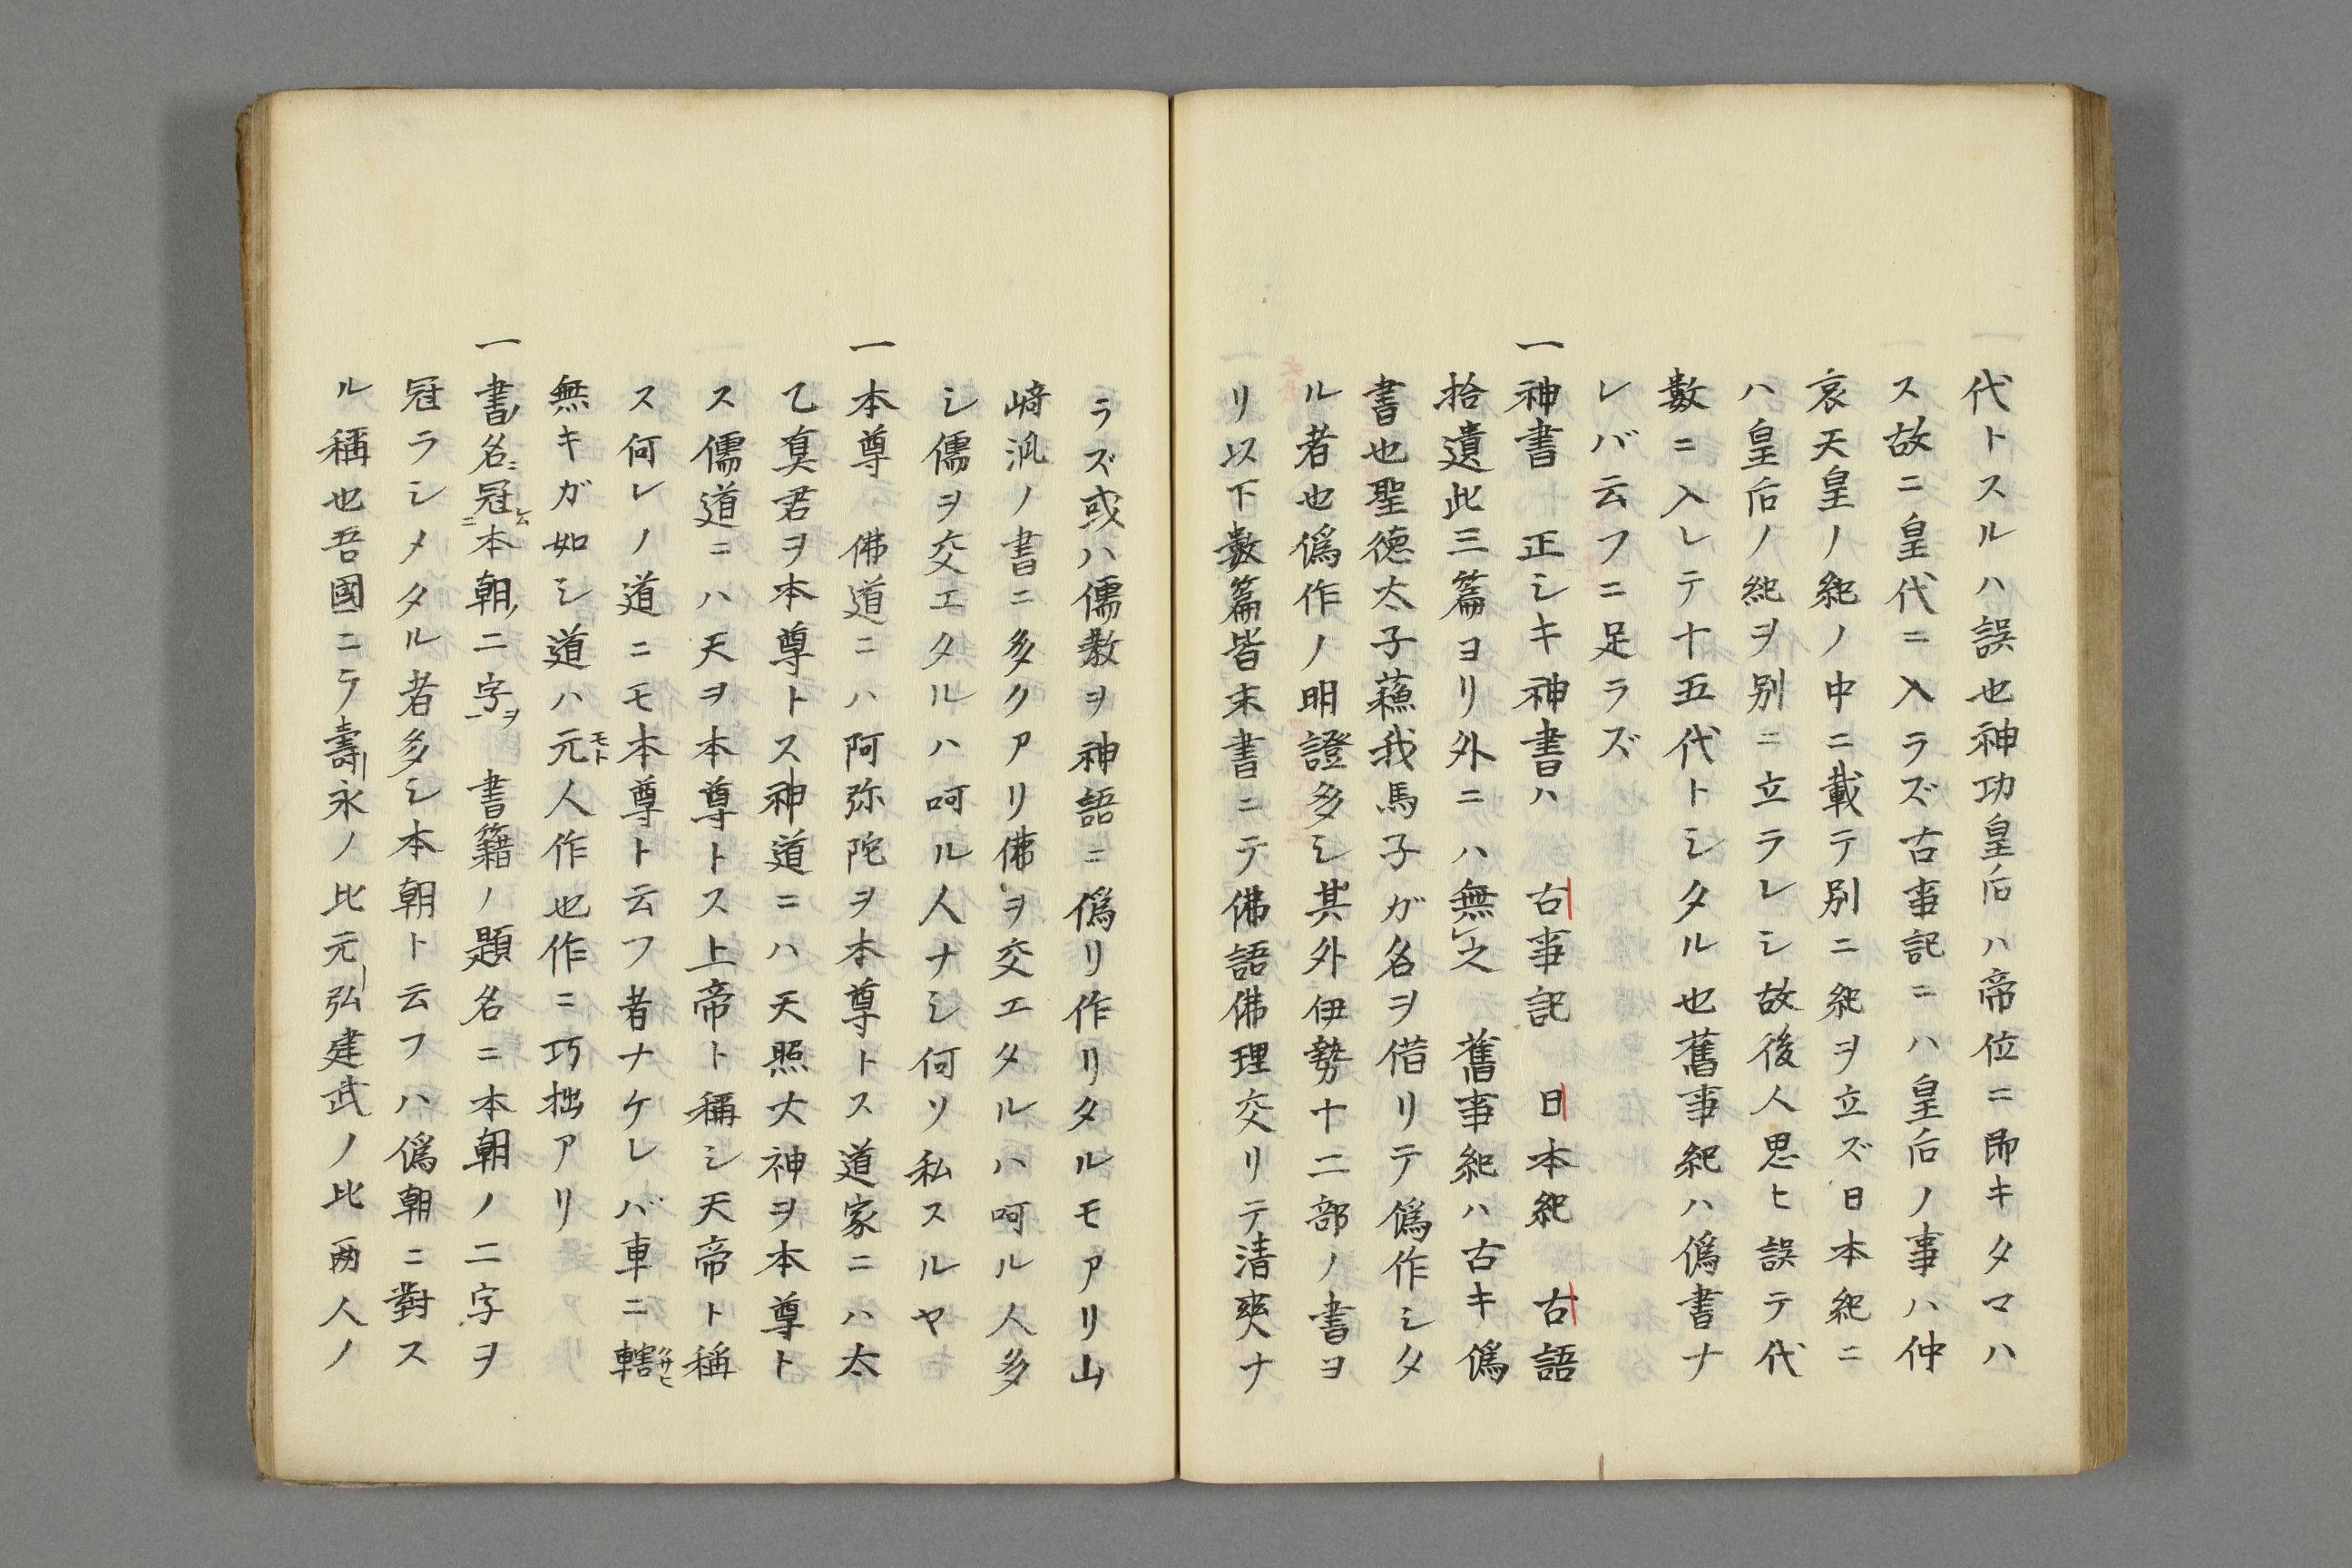 代トスルハ誤也神功皇后ハ帝位ニ即キタマハ
ス故ニ皇代ニ入ラズ古事記ニハ皇后ノ事ハ仲
哀天皇ノ紀ノ中ニ載テ別ニ紀ヲ立ズ日本紀ニ
ハ皇后ノ紀ヲ別ニ立ラレシ故後人思ヒ誤テ代
數ニ入レテ十五代トシタル也舊事紀ハ僞書ナ
レバ云フニ足ラズ
一神書 正シキ神書ハ 古事記 日本紀 古語
拾遺此三篇ヨリ外ニハ無レ之 舊事紀ハ古キ僞
書也聖德太子蘓我馬子ガ名ヲ借リテ僞作シタ
ル者也僞作ノ明證多シ其外伊勢十二部ノ書ヨ
リ以下數篇皆末書ニテ佛語佛理交リテ清爽ナ
ラズ或ハ儒教ヲ神語ニ僞リ作リタルモアリ山
﨑汎ノ書ニ多クアリ佛ヲ交エタルハ呵ル人多
シ儒ヲ交エタルハ呵ル人ナシ何ソ私スルヤ
一本尊 佛道ニハ阿弥陀ヲ本尊トス道家ニハ太
乙眞君ヲ本尊トス神道ニハ天照大神ヲ本尊ト
ス儒道ニハ天ヲ本尊トス上帝ト稱シ天帝ト稱
ス何レノ道ニモ本尊ト云フ者ナケレバ車ニ轄クサヒ
無キガ如シ道ハ元モト人作也作ニ巧拙アリ
一書ノ名ニ冠ニム本朝ノ二字一ヲ 書籍ノ題名ニ本朝ノ二字ヲ
冠ラシメタル者多シ本朝ト云フハ僞朝ニ對ス
ル稱也吾國ニテ壽永ノ比元弘建武ノ比兩人ノ